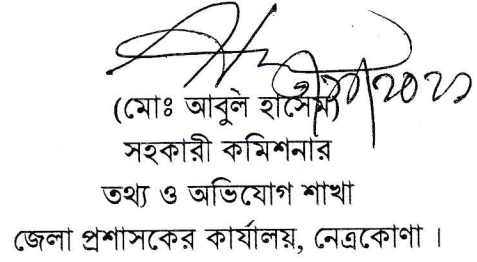 (মোঃ আবুল হাসেম)
সহকারী কমিশনার
তথ্য ও অভিযোগ শাখা
জেলা প্রশাসকের কার্যালয়, নেত্রকোণা ।